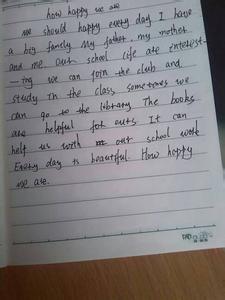 how happy we are
we should happy every day I have
a big family. My father. my mother
and me. our school life are interest-
-ing we can join the club and
study in the class sometimes we
can go to the library The books
are helpful for ours. It can
help us with our school work
Every day is beautiful. How happy
we are.